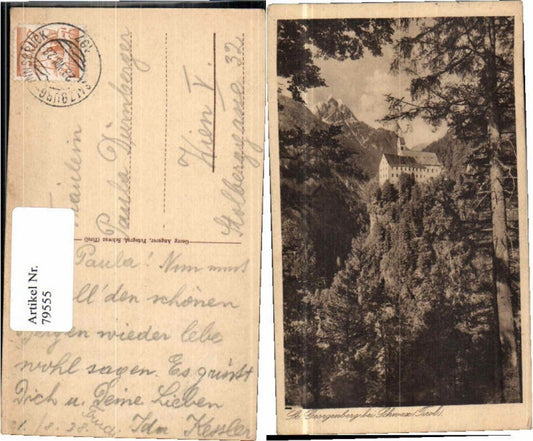 INNSBRUCK
SALZBURG
Fräulein
Paula Dürnberger
Wien V.
Kolbergasse 32
Georg Angerer, Fotograf, Schwaz (Tirol)
Artikel Nr.
79555
Paula! Nun muss
all' den schönen
Bergen wieder lebe
wohl sagen. Es grüsst
Dich u. Deine Lieben
Ida Kessler
St. Georgenberg bei Schwaz, Tirol.